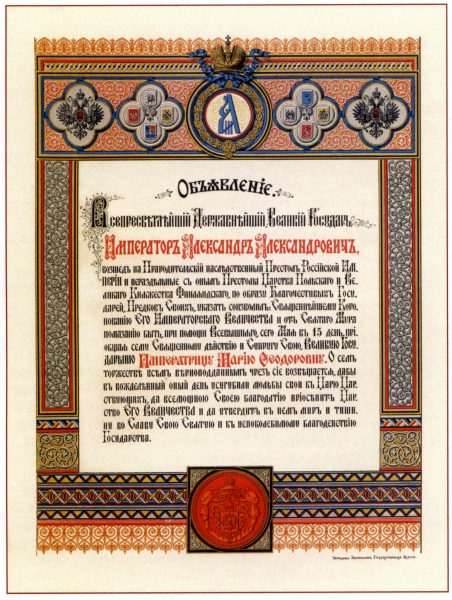 Объявленіе.
Всепресвѣтлѣйшій Державнѣйшій Великій Государь
Императоръ Александръ Александровичъ,
возшедъ на Прародительскій наслѣдственный Престолъ Россійской Им-
періи и нераздѣльные съ онымъ Престолы Царства Польскаго и Ве-
ликаго Княжества Финляндскаго, по образу Благочестивыхъ Госу-
дарей, Предковъ Своихъ, указать соизволилъ: Священнѣйшему Коро-
нованію Его Императорскаго Величества и отъ Святаго Мѵра
помазанію быть, при помощи Всевышняго, сего Маія въ 15 день, прі-
общая сему Священному дѣйствію и Супругу Свою, Великую Госу-
дарыню Императрицу Марію Ѳеодоровну. О семъ
торжествѣ всѣмъ вѣрноподданнымъ чрезъ сіе возвѣщается, дабы
въ вожделѣнный оный день усугубили мольбы свои къ Царю Цар-
ствующихъ, да всемощною Своею благодатію пріосѣнитъ Цар-
ство Его Величества и да утвердитъ въ немъ миръ и тиши-
ну во Славу Свою Святую и къ непоколебимому благоденствію
Государства.
Заготовл. Государственныхъ Бумагъ